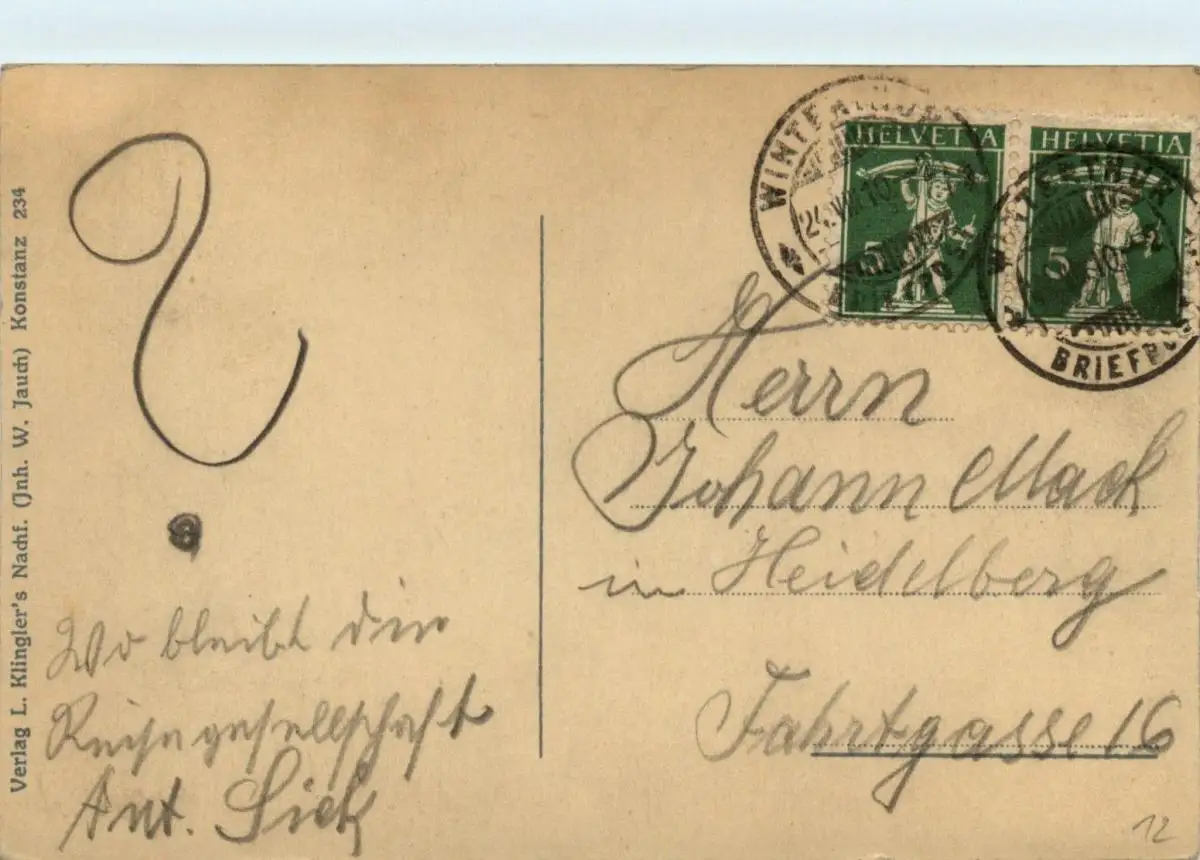 Verlag L. Klingler's Nachf. (Jnh. W. Jauch) Konstanz 234
?
Wo bleibt die
Reisegesellschaft
Ant. Sick
HELVETIA
5
HELVETIA
5
WINTERTHUR
WINTERTHUR
BRIEFP
Herrn
Johann Mack
in Heidelberg
Fahrtgasse 16
12